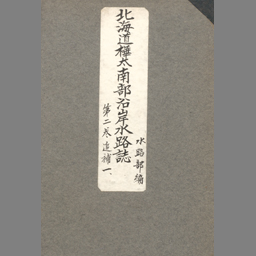 北海道樺太南部沿岸水路誌
第二巻追補一
水路部編